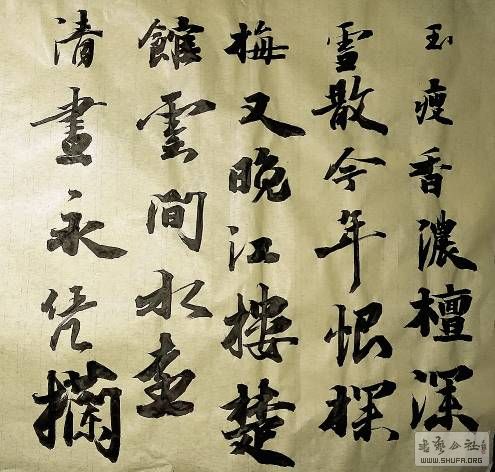 玉瘦香濃檀深
雪散今年恨探
梅又晚江樓楚
館雲間水遠
清晝永凭欄
书艺公社
WWW.SHUFA.ORG